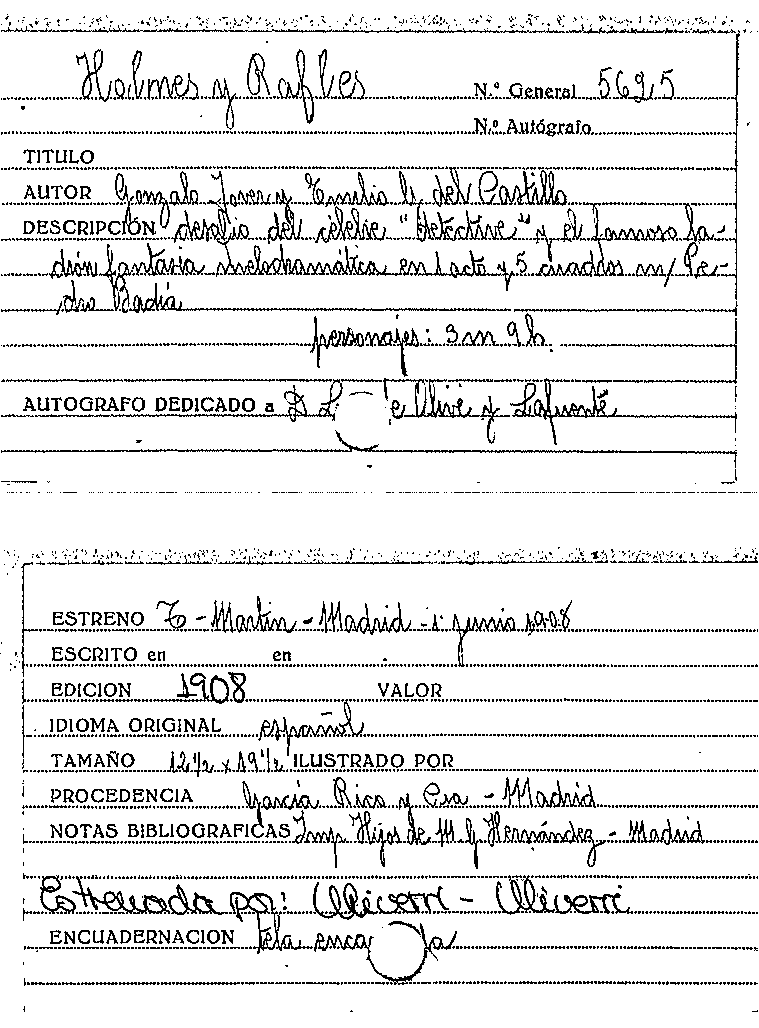 Holmes y Rafles N.º General 5695
N.º Autógrafo
TITULO
AUTOR Gonzalo Jover y Emilio G. del Castillo
DESCRIPCIÓN desafio del célebre "Detective" y el famoso la-
drón fantasia melodramática en 1 acto y 5 cuadros m/ Pe-
dro Badía
personajes: 3 m 9 h.
AUTOGRAFO DEDICADO a D L e Olivé y Lafuente
ESTRENO T - Martin - Madrid - 1 junio 1908
ESCRITO en en
EDICION 1908 VALOR
IDIOMA ORIGINAL español
TAMAÑO 12 1/2 x 19 1/2 ILUSTRADO POR
PROCEDENCIA García Rico y Cia - Madrid
NOTAS BIBLIOGRAFICAS Imp Hijos de M. G. Hernández - Madrid
Estrenada por: Uliverri - Uliverri
ENCUADERNACION tela enca a